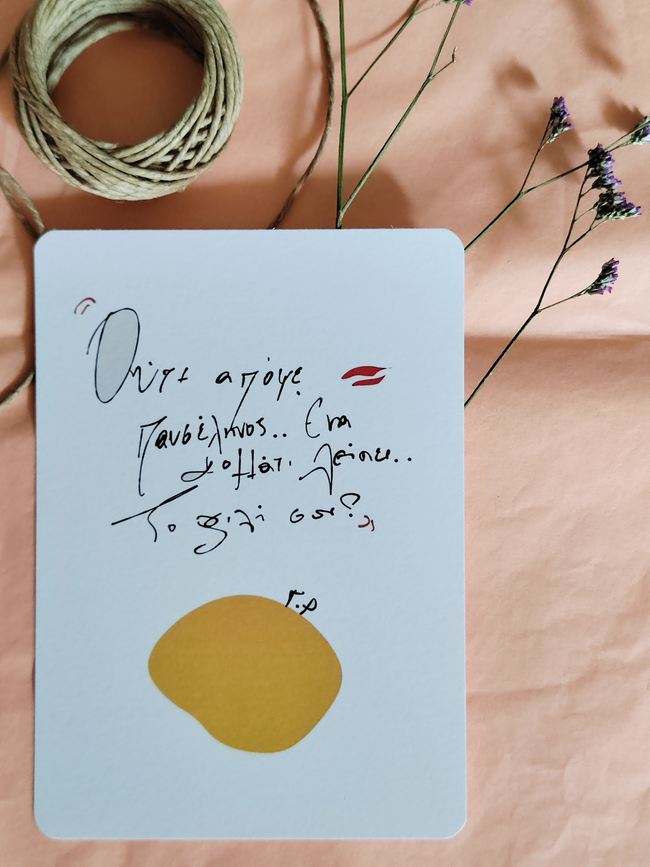 “Ούτε απόψε
πανσέληνος.. Ένα
κομμάτι λείπει..
Το φιλί σου?”
Γ.ρ